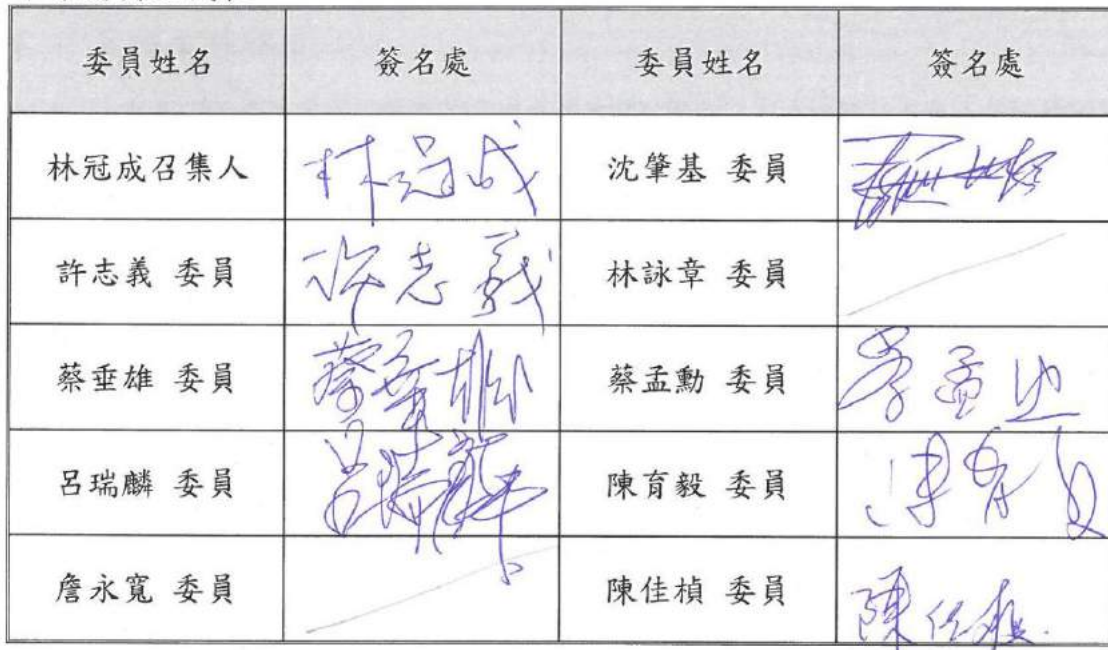 委員姓名 簽名處 委員姓名 簽名處
林冠成召集人 林冠成 沈肇基 委員
許志義 委員 許志義 林詠章 委員
蔡垂雄 委員 蔡垂雄 蔡孟勳 委員
呂瑞麟 委員 呂瑞麟 陳育毅 委員
詹永寬 委員 陳佳楨 委員 陳佳楨